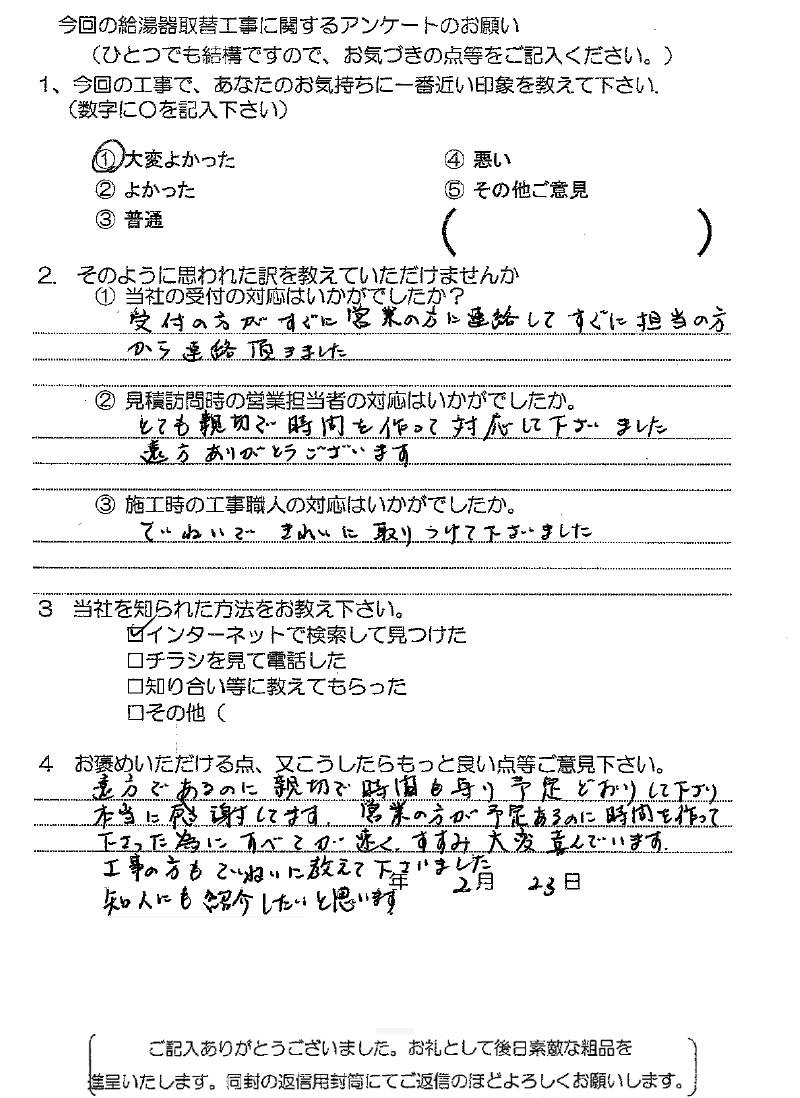 今回の給湯器取替工事に関するアンケートのお願い
（ひとつでも結構ですので、お気づきの点等をご記入ください。）
1、今回の工事で、あなたのお気持ちに一番近い印象を教えて下さい.
（数字に〇を記入下さい）
① 大変よかった ④ 悪い
② よかった ⑤ その他ご意見
③ 普通 （ ）
2. そのように思われた訳を教えていただけませんか
① 当社の受付の対応はいかがでしたか？
受付の方がすぐに営業の方に連絡してすぐに担当の方
から連絡頂きました
② 見積訪問時の営業担当者の対応はいかがでしたか。
とても親切で時間を作って対応して下さいました
遠方ありがとうございます
③ 施工時の工事職人の対応はいかがでしたか。
ていねいできれいに取りつけて下さいました
3 当社を知られた方法をお教え下さい。
☑インターネットで検索して見つけた
□チラシを見て電話した
□知り合い等に教えてもらった
□その他（
4 お褒めいただける点、又こうしたらもっと良い点等ご意見下さい。
遠方であるのに親切で時間も守り予定どおりして下さり
本当に感謝してます. 営業の方が予定あるのに時間を作って
下さった為にすべてが速く、すすみ大変喜んでいます.
工事の方もていねいに教えて下さいました
年 2月 23日
知人にも紹介したいと思います
ご記入ありがとうございました。お礼として後日素敵な粗品を
進呈いたします。同封の返信用封筒にてご返信のほどよろしくお願いします。